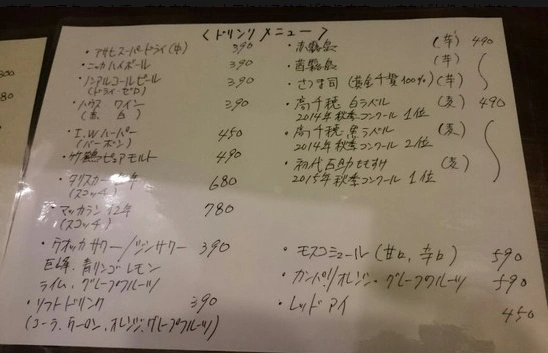 <ドリンクメニュー>
・アサヒスーパードライ(中) 390
・ニッカハイボール 390
・ノンアルコールビール 390
(ドライ・ゼロ)
・ハウス ワイン 390
(赤、白)
・I.Wハーパー 450
(バーボン)
・竹鶴ピュアモルト 490
・タリスカー 年 680
(スコッチ)
・マッカラン 12年 780
(スコッチ)
・ウオッカサワー/ジンサワー 390
巨峰、青リンゴ レモン
ライム、グレープフルーツ
・ソフトドリンク 390
(コーラ、ウーロン、オレンジ、グレープフルーツ)
(芋) 490
(芋)
・さつま司 (黄金千貫100%) (芋)
・高千穂 白ラベル (麦) 490
2014年 秋季コンクール 1位
・高千穂 黒ラベル (麦)
2014年 秋季コンクール 2位
・初代 (麦)
2015年 秋季コンクール 1位
・モスコミュール (甘口、辛口) 590
・カンパリオレンジ・グレープフルーツ 590
・レッドアイ 450